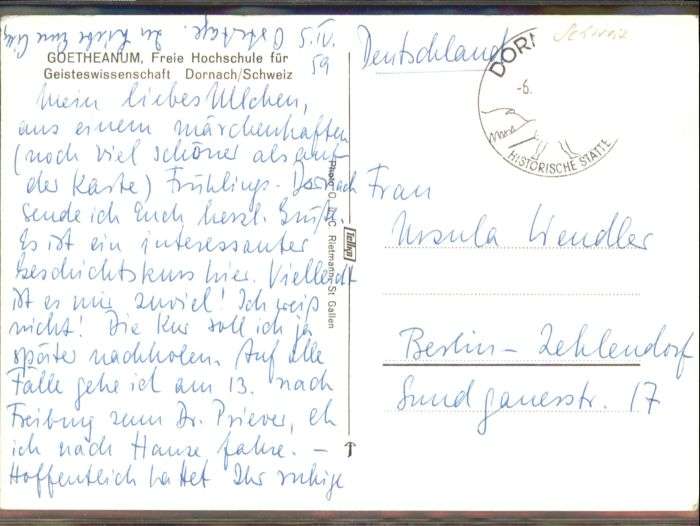 5.IV.
59
Ostertage. In Liebe Eure
GOETHEANUM, Freie Hochschule für
Geisteswissenschaft Dornach/Schweiz
Mein liebes Ulchen,
aus einem märchenhaften
(noch viel schöner als auf
der Karte) Frühlings-Dornach
sende ich Euch herzl. Grüße.
Es ist ein interessanter
Geschichtskurs hier. Vielleicht
ist es mir zuviel! Ich weiß
nicht! Die Kur soll ich ja
später nachholen. Auf alle
Fälle gehe ich am 13. nach
Freiburg zum Dr. Priever, eh
ich nach Hause fahre. –
Hoffentlich hattet Ihr ruhige
Rietmann, St. Gallen
Deutschland
Schweiz
DORN
-6.
HISTORISCHE STÄTTE
Frau
Ursula Wendler
Berlin-Zehlendorf
Sundgauerstr. 17